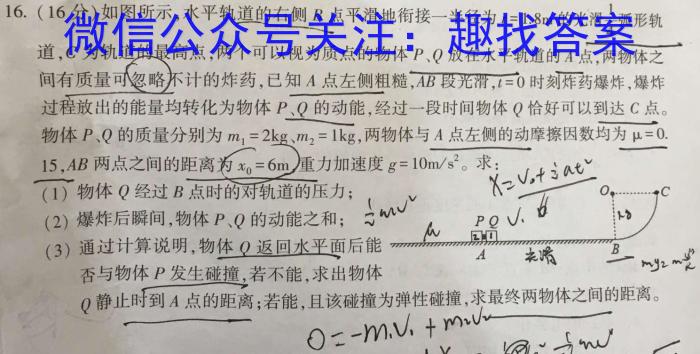 16. (16分)如图所示,水平轨道的右侧 B 点平滑地衔接一半径为
微信公众号关注：趣找答案
道, C 为轨道的最高点,两个可以视为质点的物体 P、Q 放在水平轨道的 A 点,两物体之
间有质量可忽略不计的炸药,已知 A 点左侧粗糙,AB 段光滑,t=0 时刻炸药爆炸,爆炸
过程放出的能量均转化为物体 P、Q 的动能,经过一段时间物体 Q 恰好可以到达 C 点。
物体 P、Q 的质量分别为 m₁=2kg、m₂=1kg,两物体与 A 点左侧的动摩擦因数均为 μ=0.
15,AB 两点之间的距离为 x₀=6m,重力加速度 g=10m/s²。求:
(1) 物体 Q 经过 B 点时的对轨道的压力;
(2) 爆炸后瞬间,物体 P、Q 的动能之和;
(3) 通过计算说明,物体 Q 返回水平面后能
否与物体 P 发生碰撞,若不能,求出物体
Q 静止时到 A 点的距离;若能,且该碰撞为弹性碰撞,求最终两物体之间的距离。
O
C
P Q
A
B
光滑
0=-m₁v₁+m₂v₂